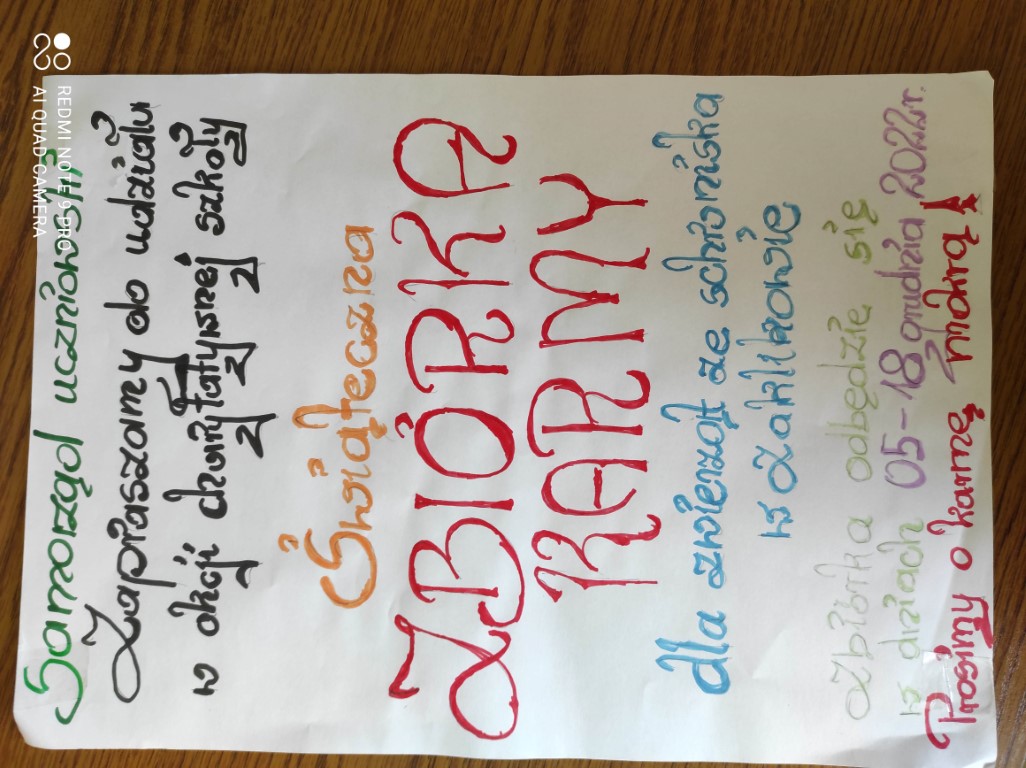 Samorząd uczniowski
Zapraszamy do udziału
w akcji charytatywnej szkoły
Świąteczna
ZBIÓRKA
KARMY
dla zwierząt ze schroniska
w
Zbiórka odbędzie się
w dniach 05-18 grudnia 2022r.
Prosimy o karmę mokrą!
REDMI NOTE 9 PRO
AI QUAD CAMERA